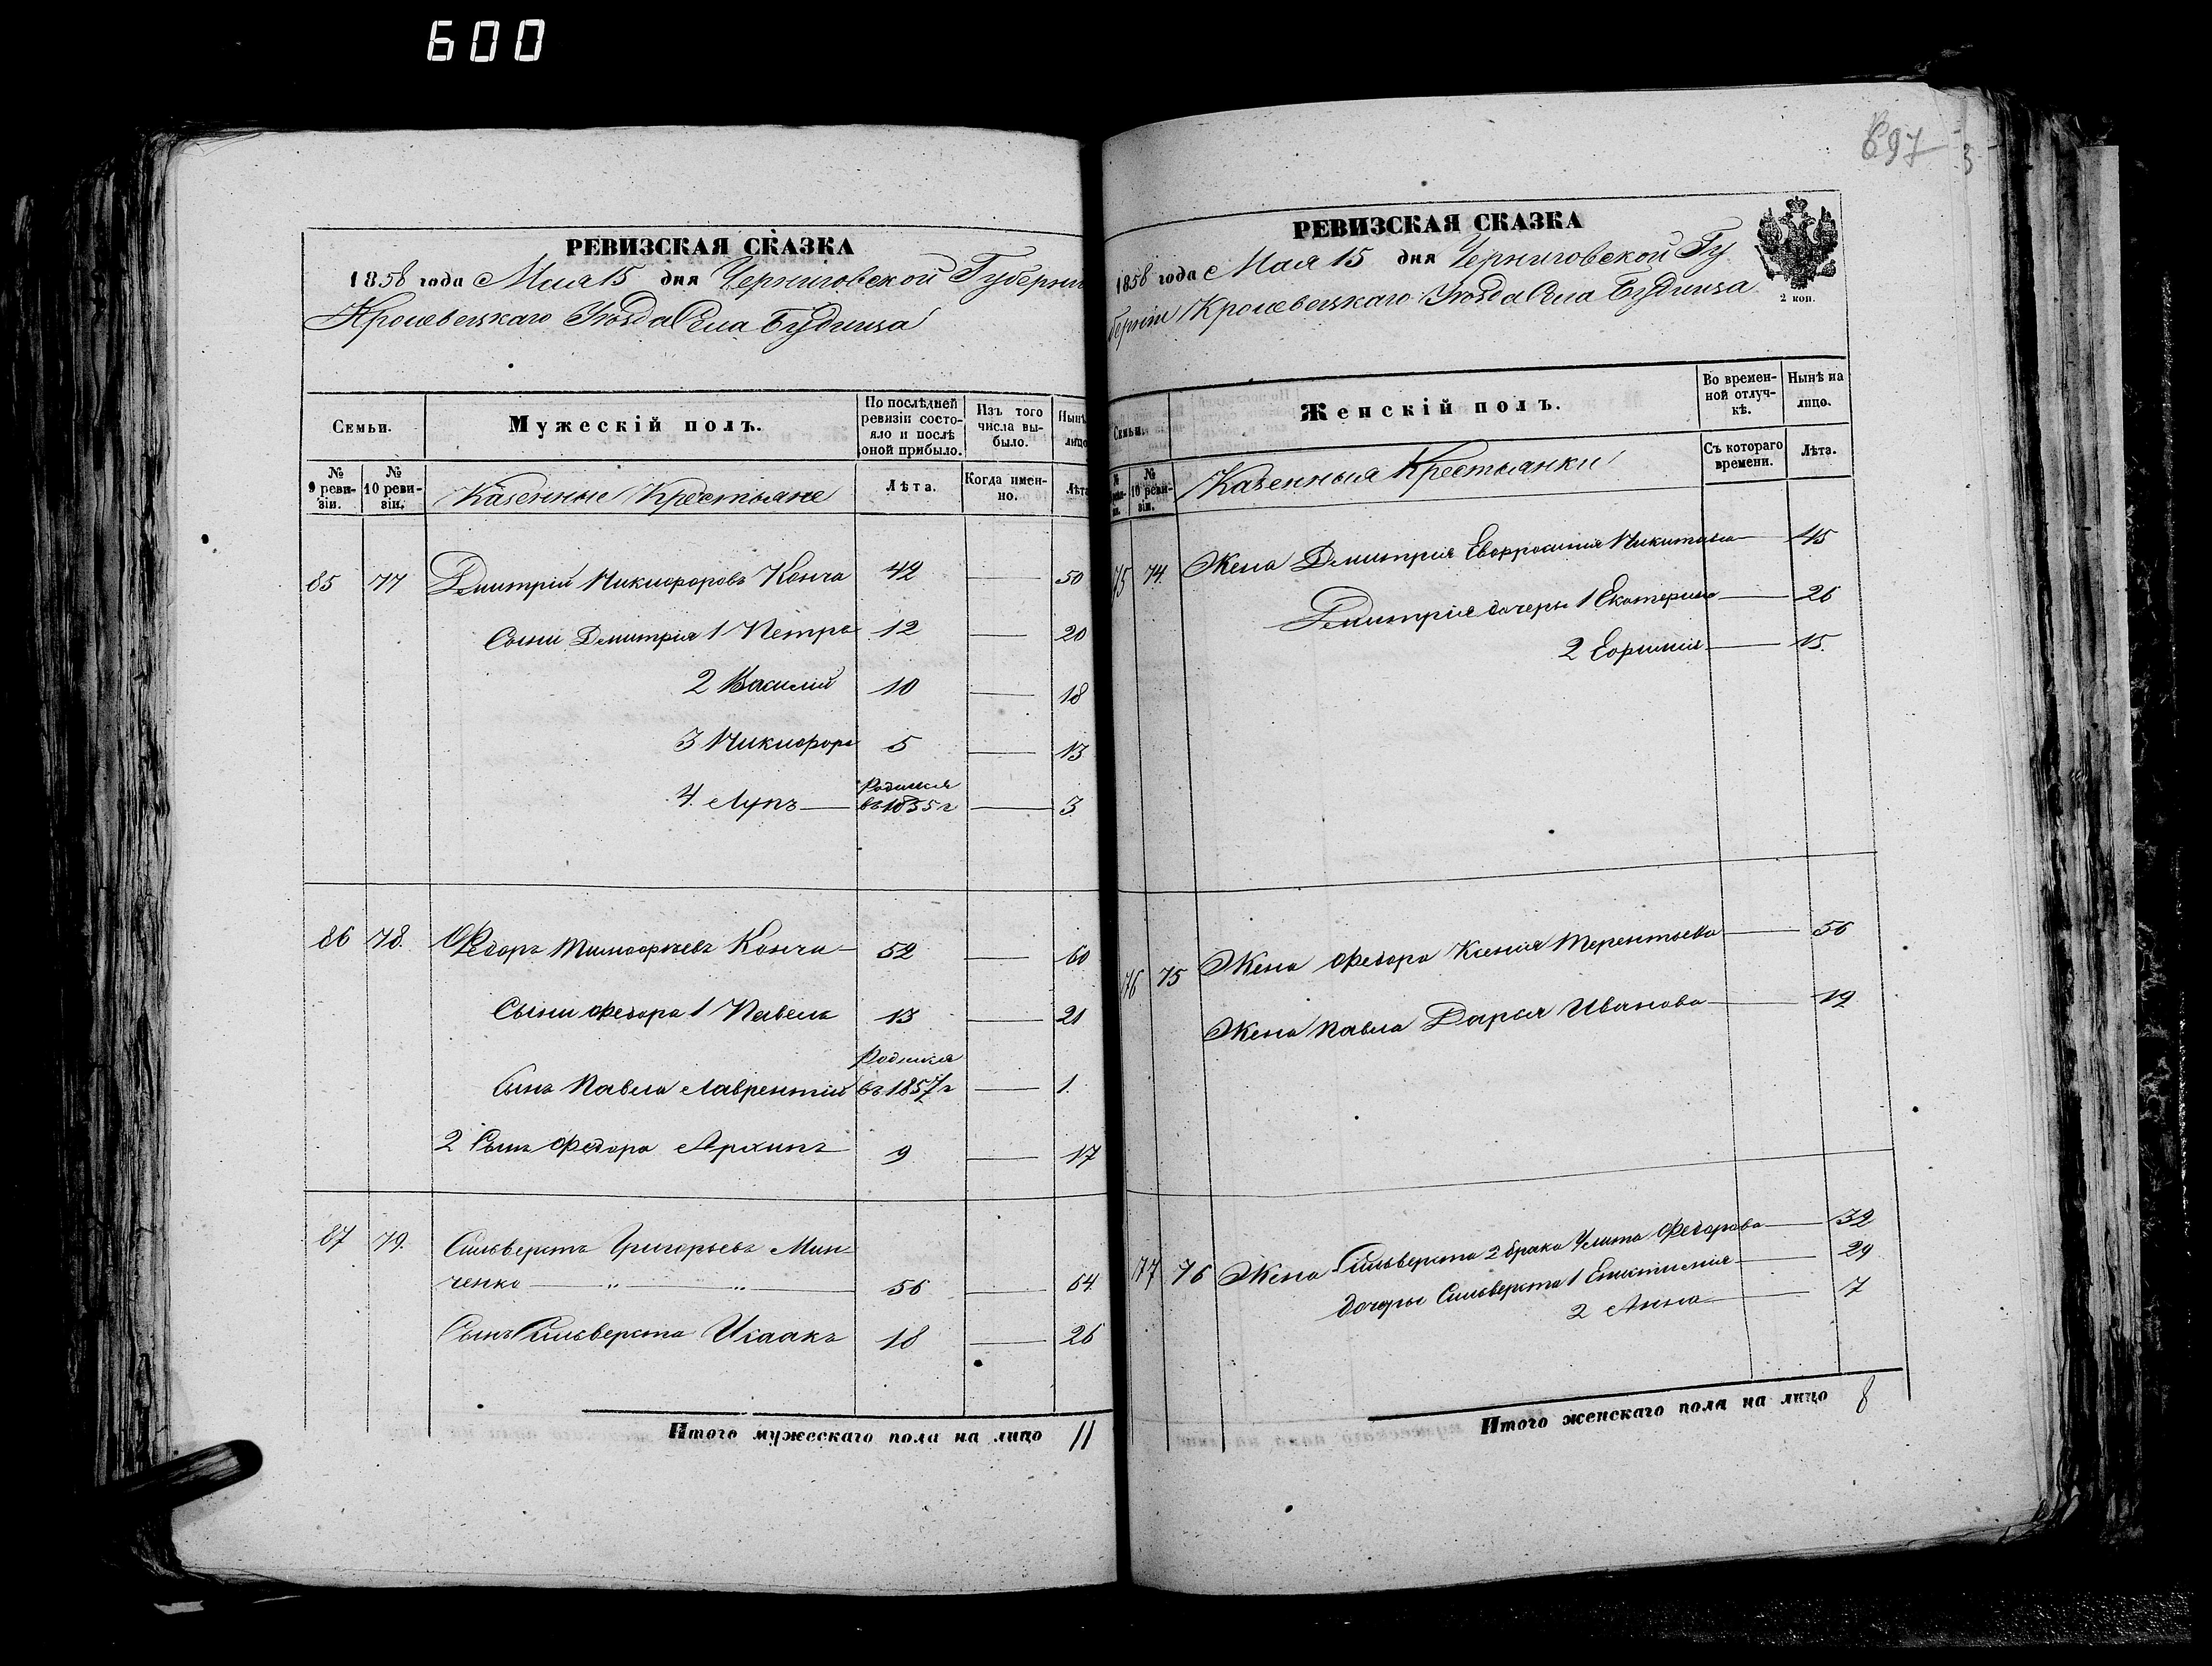 600
697
РЕВИЗСКАЯ СКАЗКА
1858 года Мая 15 дня Черниговской Губерніи
Кролевецкаго Уѣзда Села Будища
Семьи.
Мужескій полъ.
По послѣдней ревизіи состояло и послѣ оной прибыло.
Изъ того числа выбыло.
Нынѣ лицо
№ 9 ревизіи.
№ 10 ревизіи.
Казенные Крестьяне
Лѣта.
Когда именно.
Лѣта
85 77 Дмитрій Никифоровъ Конча 42 — 50
Сыни Дмитрія 1 Петро 12 — 20
2 Василій 10 — 18
3 Никифоръ 5 — 13
4. Лупъ — Родился въ 1855 г — 3
86 78. Федоръ Тимофѣевъ Конча — 52 — 60
Сыни Федора 1 Павелъ 13 — 21
Сынъ Павла Лаврентій Родился въ 1857 г — 1.
2 Сынъ Федора Архипъ 9 — 17
87 79. Сильверстъ Григорьевъ Мин-
ченко — 56 — 64
Сынъ Сильверста Исаакъ 18 — 26
Итого мужескаго пола на лицо 11
РЕВИЗСКАЯ СКАЗКА
1858 года Мая 15 дня Черниговской Гу
берніи Кролевецкаго Уѣзда Села Будища
2 коп.
Семьи.
Женскій полъ.
Во временной отлучкѣ.
Нынѣ на лицо.
№ 10 ревизіи.
Казенныя Крестьянки
Съ котораго времени.
Лѣта.
75 74. Жена Дмитрія Евфросинія Никитина — 45
Дмитрія дочеры 1 Екатерина — 26
2 Ефимія — 15.
76 75 Жена Федора Ксенія Терентьева — 56
Жена Павла Дарья Иванова — 19
77 76 Жена Сильверста 2 брака Улита Федорова — 32
дочеры Сильверста 1 Епистимія — 29
2 Анна — 7
Итого женскаго пола на лицо 8